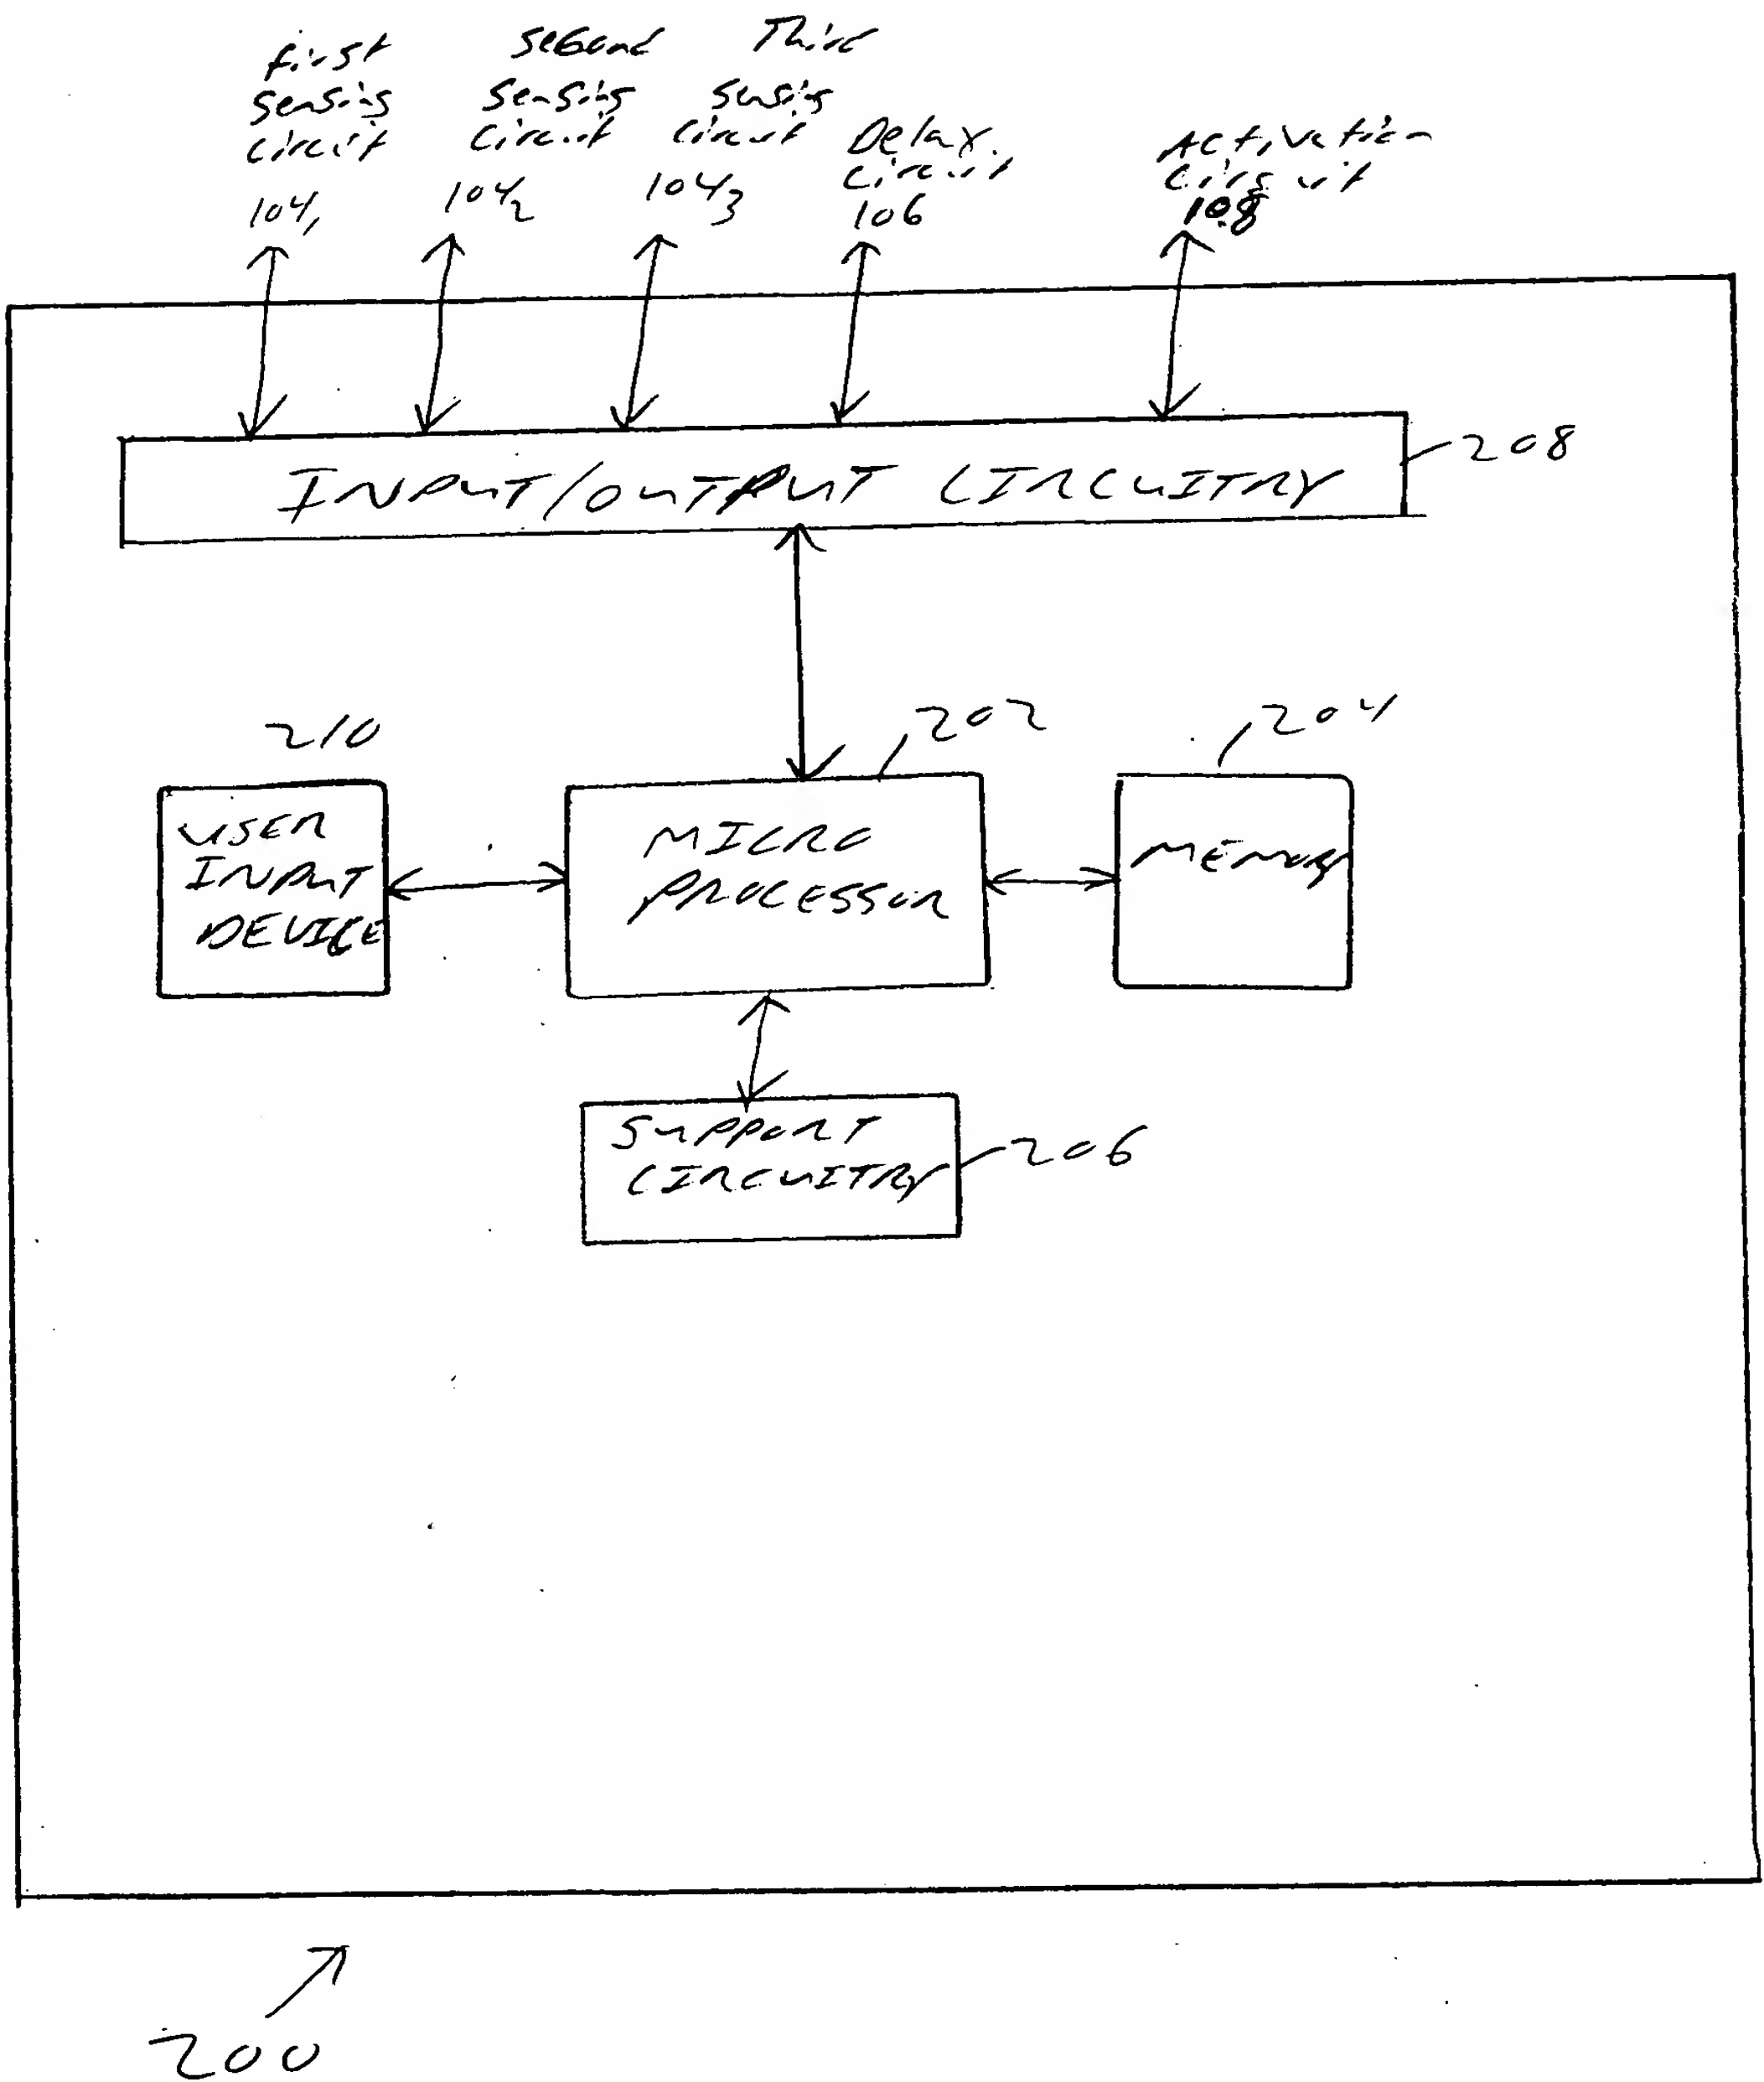 First
Sensing
Circuit
104₁
Second
Sensing
Circuit
104₂
Third
Sensing
Circuit
104₃
Delay
Circuit
106
Activation
Circuit
108
INPUT/OUTPUT CIRCUITRY
208
210
USER
INPUT
DEVICE
202
MICRO
PROCESSOR
204
MEMORY
SUPPORT
CIRCUITRY
206
200